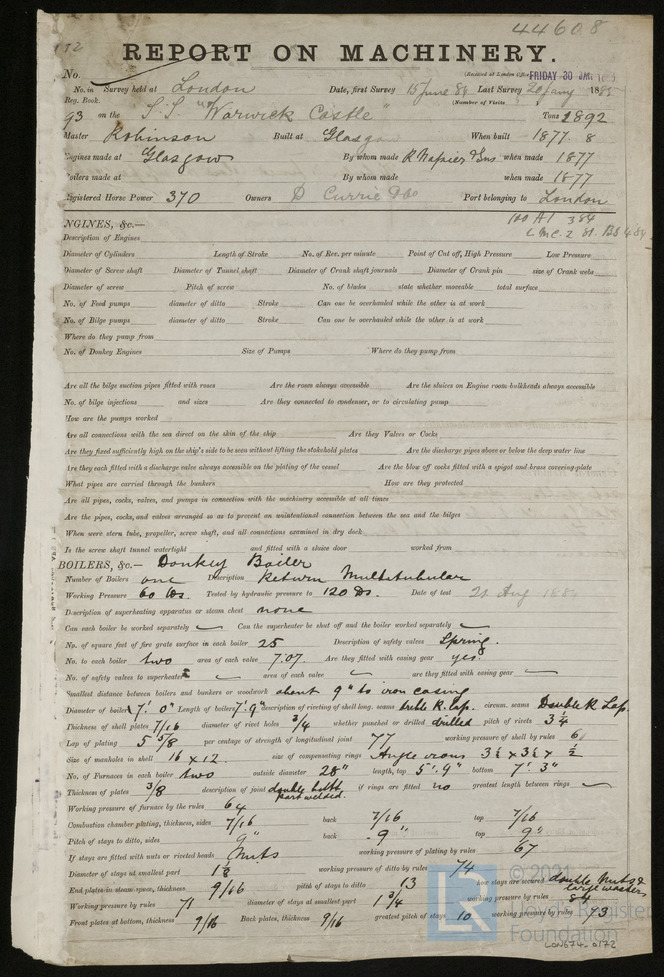 44608
172
REPORT ON MACHINERY.
No. (Received at London Office FRIDAY 30 JAN 1885
No. in Survey held at London Date, first Survey 15 June 84 Last Survey 20 Jany 1885
Reg. Book. (Number of Visits
93 on the S.S. "Warwick Castle" Tons 2892
Master Robinson Built at Glasgow When built 1877.8
Engines made at Glasgow By whom made R Napier & Sons when made 1877
Boilers made at By whom made when made 1877
Registered Horse Power 370 Owners D Currie & Co Port belonging to London
100 A1 3 84
ENGINES, &c.—
Description of Engines
Diameter of Cylinders Length of Stroke No. of Rev. per minute Point of Cut off, High Pressure Low Pressure
Diameter of Screw shaft Diameter of Tunnel shaft Diameter of Crank shaft journals Diameter of Crank pin size of Crank webs
Diameter of screw Pitch of screw No. of blades state whether moveable total surface
No. of Feed pumps diameter of ditto Stroke Can one be overhauled while the other is at work
No. of Bilge pumps diameter of ditto Stroke Can one be overhauled while the other is at work
Where do they pump from
No. of Donkey Engines Size of Pumps Where do they pump from
Are all the bilge suction pipes fitted with roses Are the roses always accessible Are the sluices on Engine room bulkheads always accessible
No. of bilge injections and sizes Are they connected to condenser, or to circulating pump
How are the pumps worked
Are all connections with the sea direct on the skin of the ship Are they Valves or Cocks
Are they fixed sufficiently high on the ship's side to be seen without lifting the stokehold plates Are the discharge pipes above or below the deep water line
Are they each fitted with a discharge valve always accessible on the plating of the vessel Are the blow off cocks fitted with a spigot and brass covering-plate
What pipes are carried through the bunkers How are they protected
Are all pipes, cocks, valves, and pumps in connection with the machinery accessible at all times
Are the pipes, cocks, and valves arranged so as to prevent an unintentional connection between the sea and the bilges
When were stern tube, propeller, screw shaft, and all connections examined in dry dock
Is the screw shaft tunnel watertight and fitted with a sluice door worked from
BOILERS, &c.— Donkey Boiler
Number of Boilers one Description Return Multitubular
Working Pressure 60 lbs. Tested by hydraulic pressure to 120 lbs. Date of test 21 Aug
Description of superheating apparatus or steam chest none
Can each boiler be worked separately Can the superheater be shut off and the boiler worked separately
No. of square feet of fire grate surface in each boiler 25 Description of safety valves Spring.
No. to each boiler two area of each valve 7.07. Are they fitted with easing gear yes.
No. of safety valves to superheater area of each valve are they fitted with easing gear
Smallest distance between boilers and bunkers or woodwork about 9" to iron casing
Diameter of boilers 7'. 0" Length of boilers 7'. 9" description of riveting of shell long. seams treble R. lap. circum. seams Double R. Lap.
Thickness of shell plates 7/16 diameter of rivet holes 3/4 whether punched or drilled drilled pitch of rivets 3 1/4
Lap of plating 5 5/8 per centage of strength of longitudinal joint 77 working pressure of shell by rules 6
Size of manholes in shell 16 x 12. size of compensating rings Angle irons 3 1/2 x 3 1/2 x 1/2
No. of Furnaces in each boiler two outside diameter 28" length, top 5'. 9" bottom 7'. 3"
Thickness of plates 3/8 description of joint double butt part welded. if rings are fitted no greatest length between rings
Working pressure of furnace by the rules 64
Combustion chamber plating, thickness, sides 7/16 back 7/16 top 7/16
Pitch of stays to ditto, sides 9" back 9" top 9"
If stays are fitted with nuts or riveted heads Nuts working pressure of plating by rules 67
Diameter of stays at smallest part working pressure of ditto by rules 74
End plates in steam space, thickness 9/16 pitch of stays to ditto 13 how stays are secured double Nuts & large washers
Working pressure by rules 71 diameter of stays at smallest part 1 3/4 working pressure by rules 84
Front plates at bottom, thickness 9/16 Back plates, thickness 9/16 greatest pitch of stays 10 working pressure by rules 73
© 2021
LR
Lloyd's Register
Foundation
LON674-0172